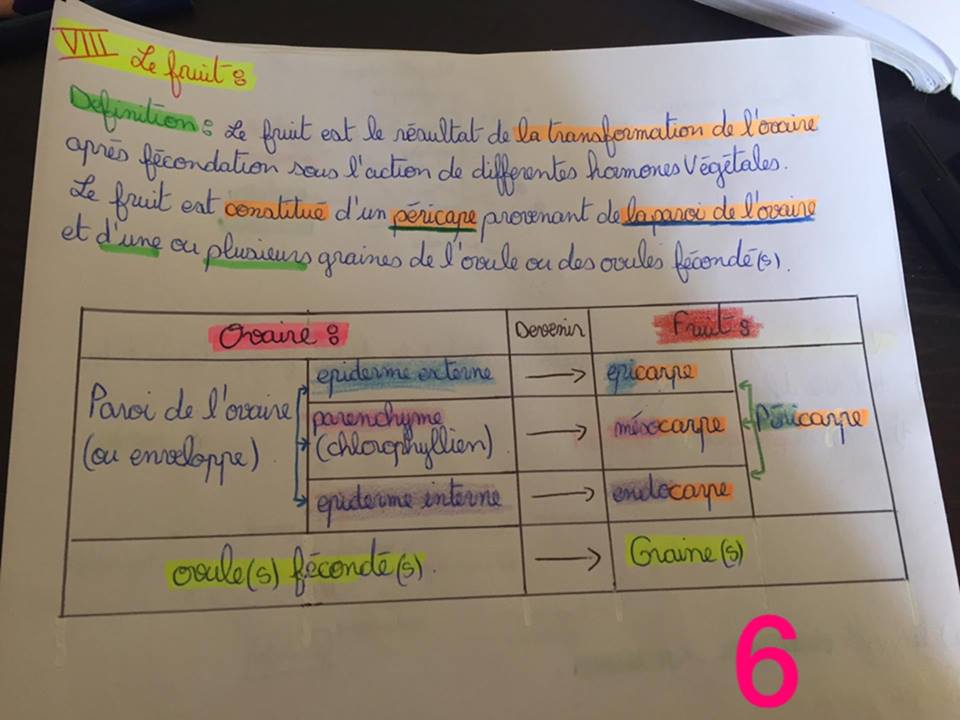 VIII Le fruit :
Définition : Le fruit est le résultat de la transformation de l'ovaire
après fécondation sous l'action de differentes hormones Végétales.
Le fruit est constitué d'un péricape provenant de la paroi de l'ovaire
et d'une ou plusieurs graines de l'ovule ou des ovules fécondé(s).
Ovaire : Devenir Fruit :
Paroi de l'ovaire
(ou enveloppe)
epiderme externe → epicarpe
parenchyme
(chlorophyllien) → mésocarpe
epiderme interne → endocarpe
Péricarpe
ovule(s) fécondé(s). → Graine(s)
6